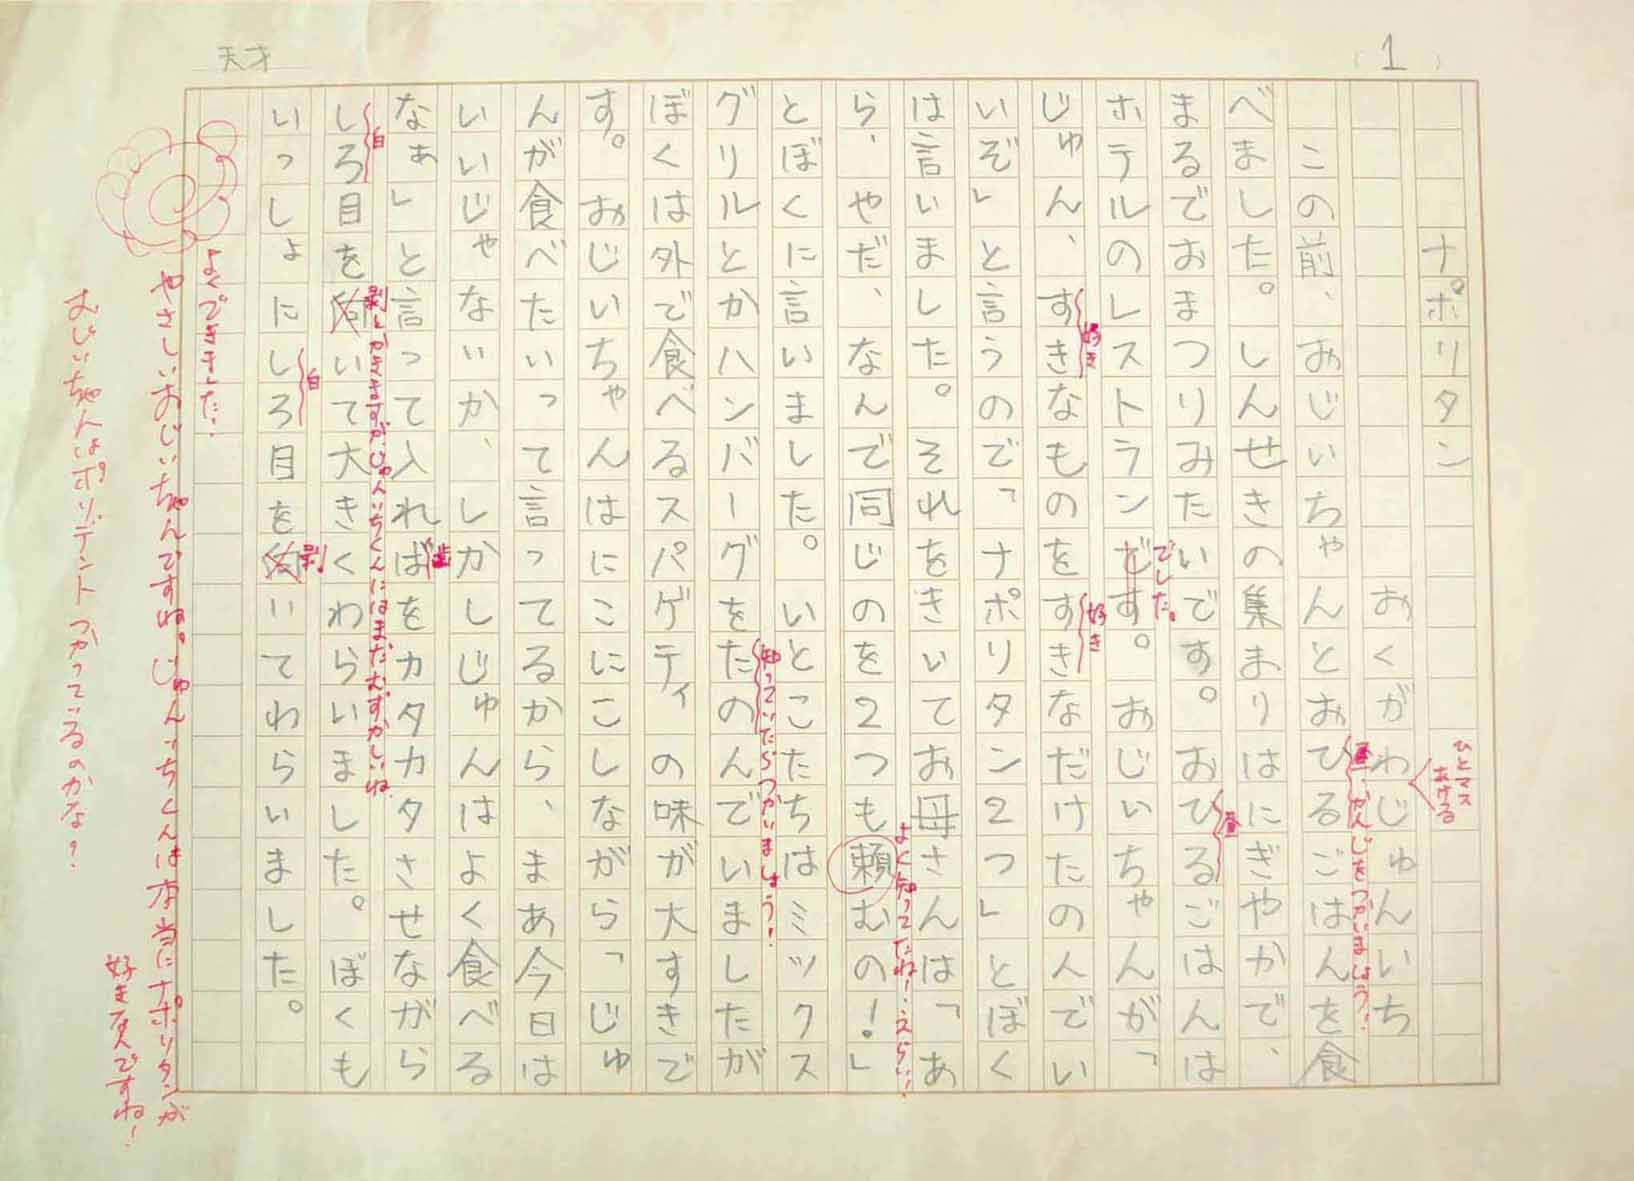 天才
(1)
ナポリタン
おくがわじゅんいち
ひとマス
あける
この前、おじいちゃんとおひるごはんを食
昼 かんじをつかいましょう!
べました。しんせきの集まりはにぎやかで、
まるでおまつりみたいです。おひるごはんは
昼
でした。
ホテルのレストランです。おじいちゃんが、「
じゅん、すきなものをすきなだけたのんでい
好き
好き
いぞ」と言うので「ナポリタン2つ」とぼく
は言いました。それをきいてお母さんは「あ
よく知ってたね!えらい!
ら、やだ、なんで同じのを2つも頼むの!」
とぼくに言いました。いとこたちはミックス
知っていたらつかいましょう!
グリルとかハンバーグをたのんでいましたが
ぼくは外で食べるスパゲティの味が大すきで
す。おじいちゃんはにこにこしながら「じゅ
んが食べたいって言ってるから、まあ今日は
いいじゃないか、しかしじゅんはよく食べる
なぁ」と言って入ればをカタカタさせながら
歯
白
剥とかきますが、じゅんいちくんにはまだむずかしいね
しろ目を剥いて大きくわらいました。ぼくも
白
剥
いっしょにしろ目を剥いてわらいました。
よくできました!
やさしいおじいちゃんですね。じゅんいちくんは本当にナポリタンが
好きなんですね!
おじいちゃんはポリデントつかっているのかな?